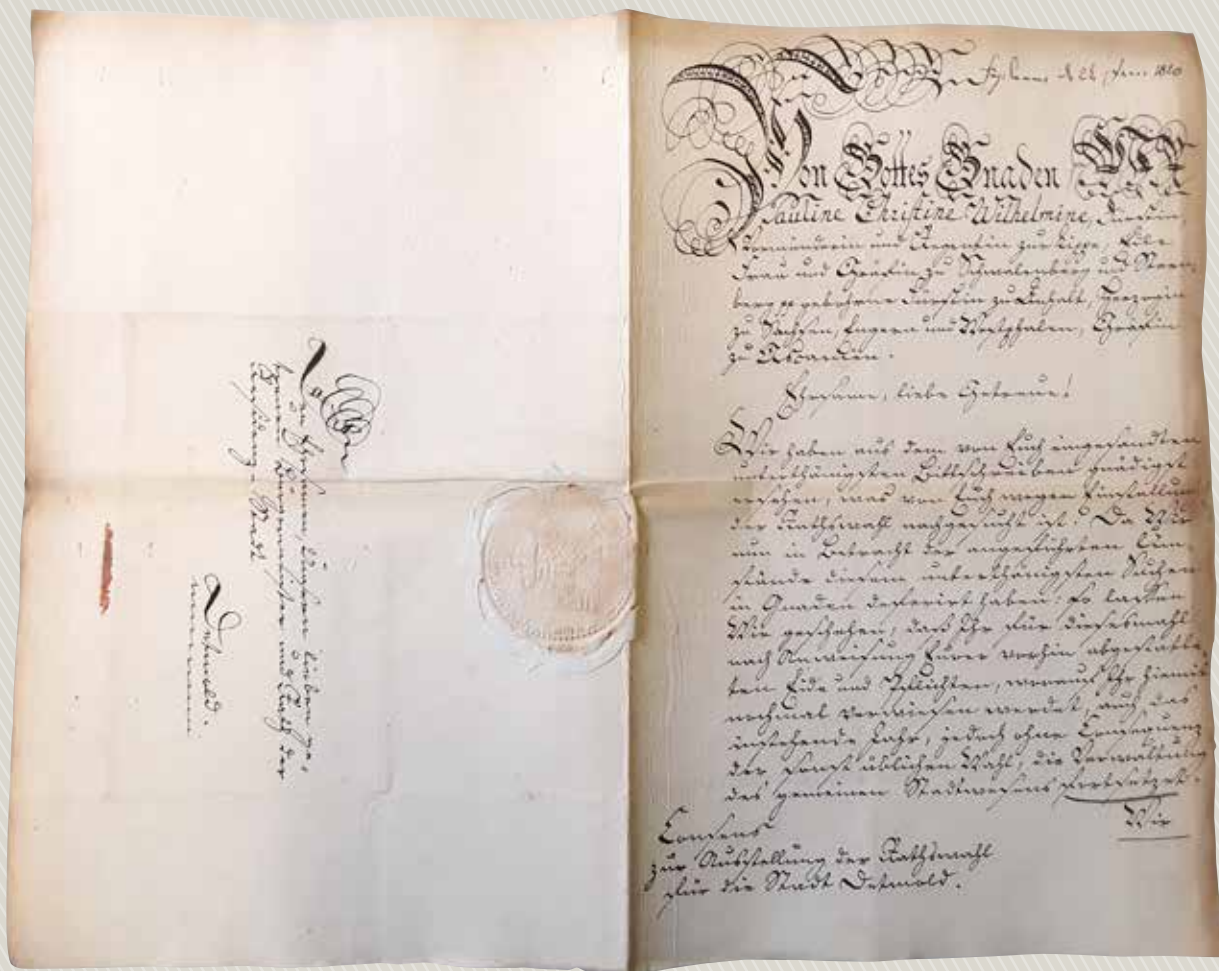 1810
Von Gottes Gnaden Wir
Pauline Christine Wilhelmine, Fürstin,
Vormünderin und Regentin zur Lippe, Edle
Frau und Gräfin zu Schwalenberg und Stern-
berg pp gebohrne Fürstin zu Anhalt, Herzogin
zu Sachsen, Engern und Westphalen, Gräfin
zu Ascanien.
Ehrsame, liebe Getreue!
Wir haben aus dem von Euch eingesandten
unterthänigsten Bittschreiben gnädigst
ersehen, was von Euch wegen Einstellung
der Rathswahl nachgesucht ist. Da Wir
nun in Betracht der angeführten Um-
stände diesem unterthänigsten Suchen
in Gnaden deferirt haben: So lassen
Wir geschehen, daß Ihr für diesesmahl
nach Anweisung Eurer vorhin abgestatte-
ten Eide und Pflichten, worauf Ihr hiemit
nochmal verwiesen werdet, auch das
instehende Jahr, jedoch ohne Consequenz
der sonst üblichen Wahl, die Verwaltung
des gemeinen Stadtwesens fortsetzet.
Wir
Consens
zur Ausstellung der Rathswahl
für die Stadt Detmold.
Denen Ehrsamen, Unsern lieben ge-
treuen Bürgermeister und Rath der
Residenz-Stadt
Detmold.